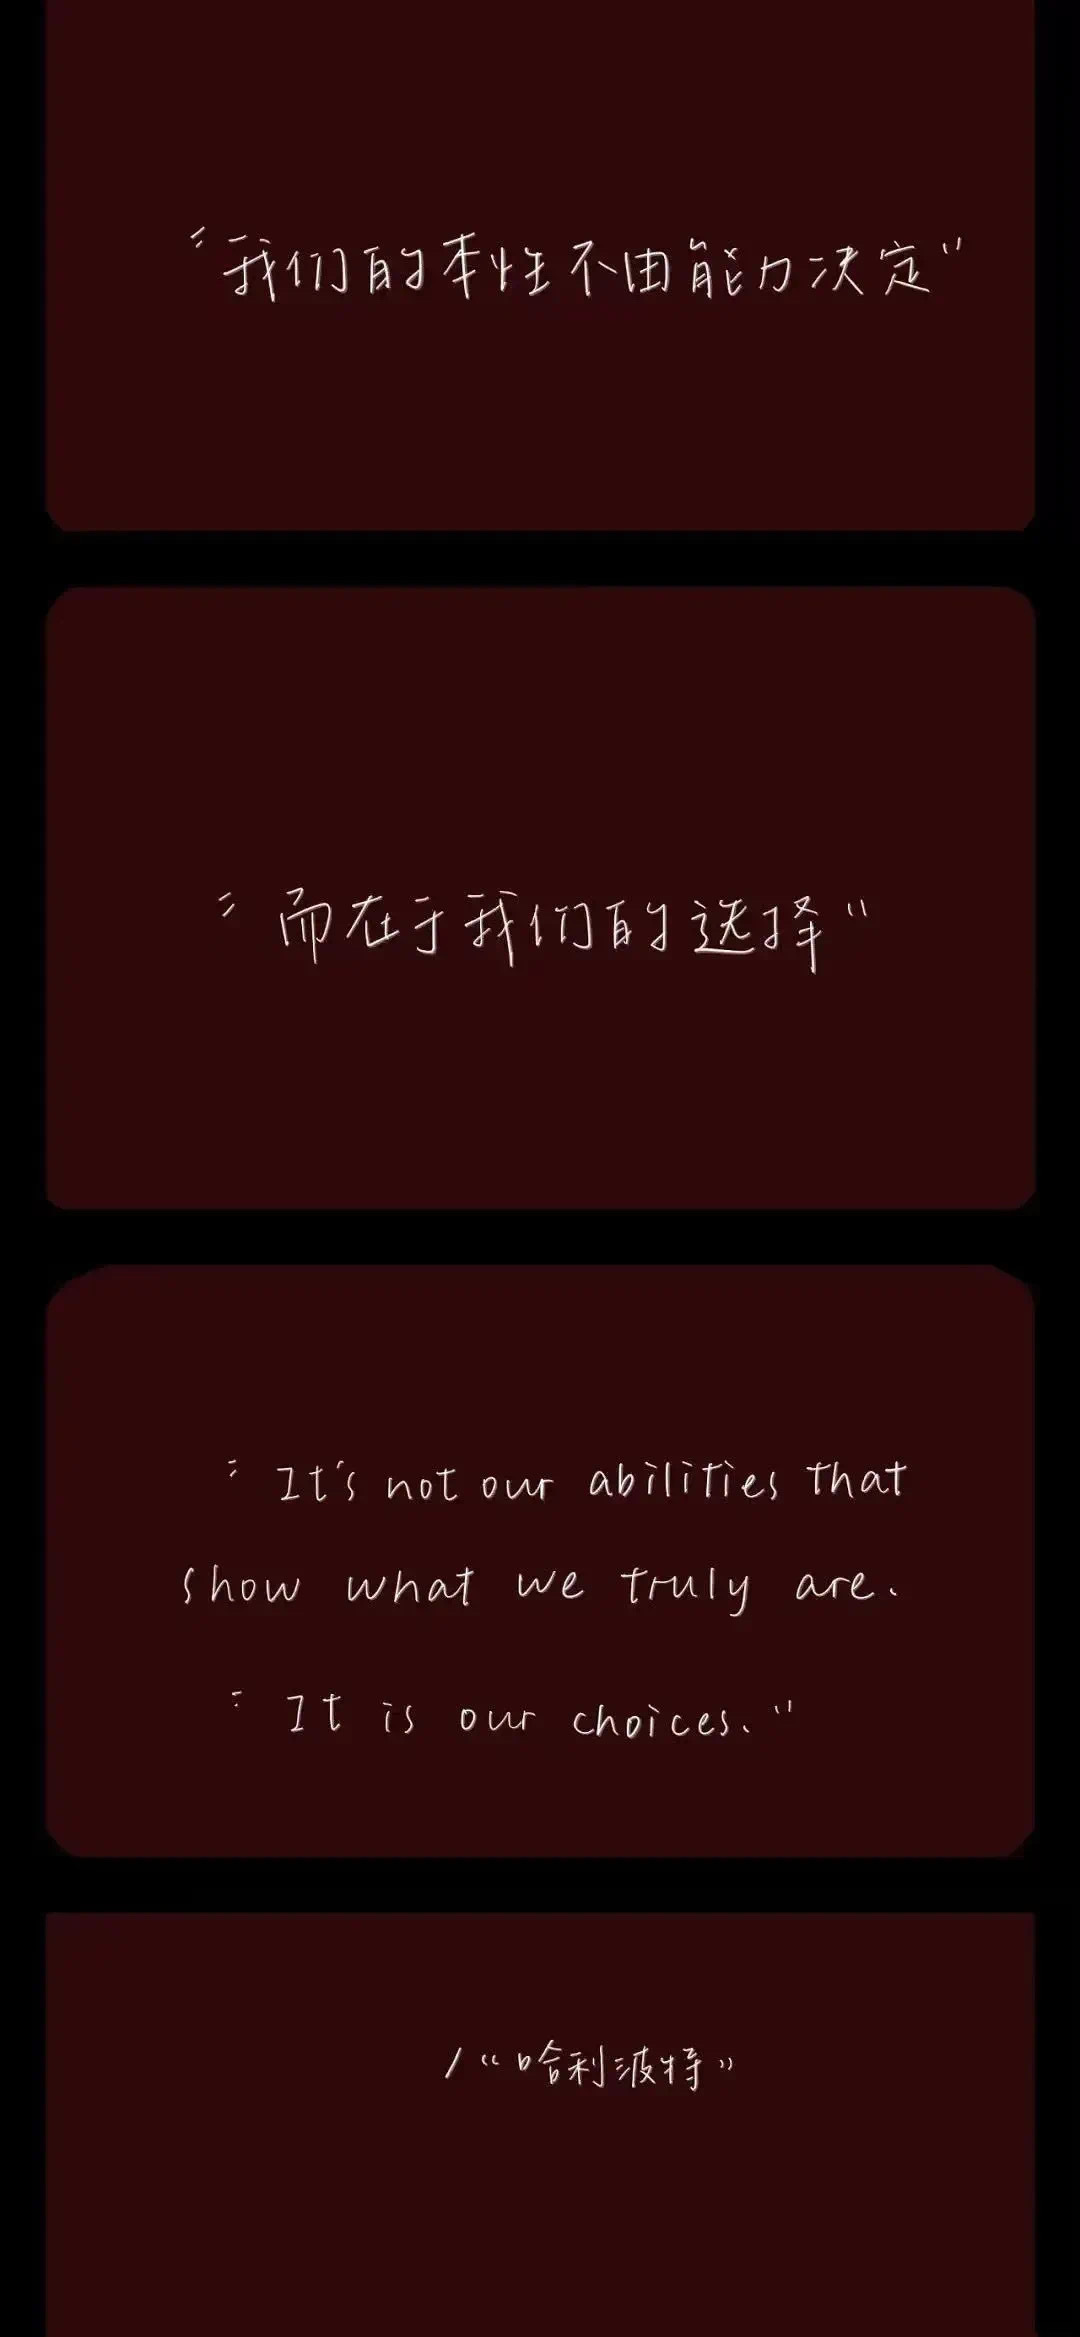 “我们的本性不由能力决定”
“而在于我们的选择”
“It's not our abilities that
show what we truly are.
“It is our choices.”
/“哈利波特”